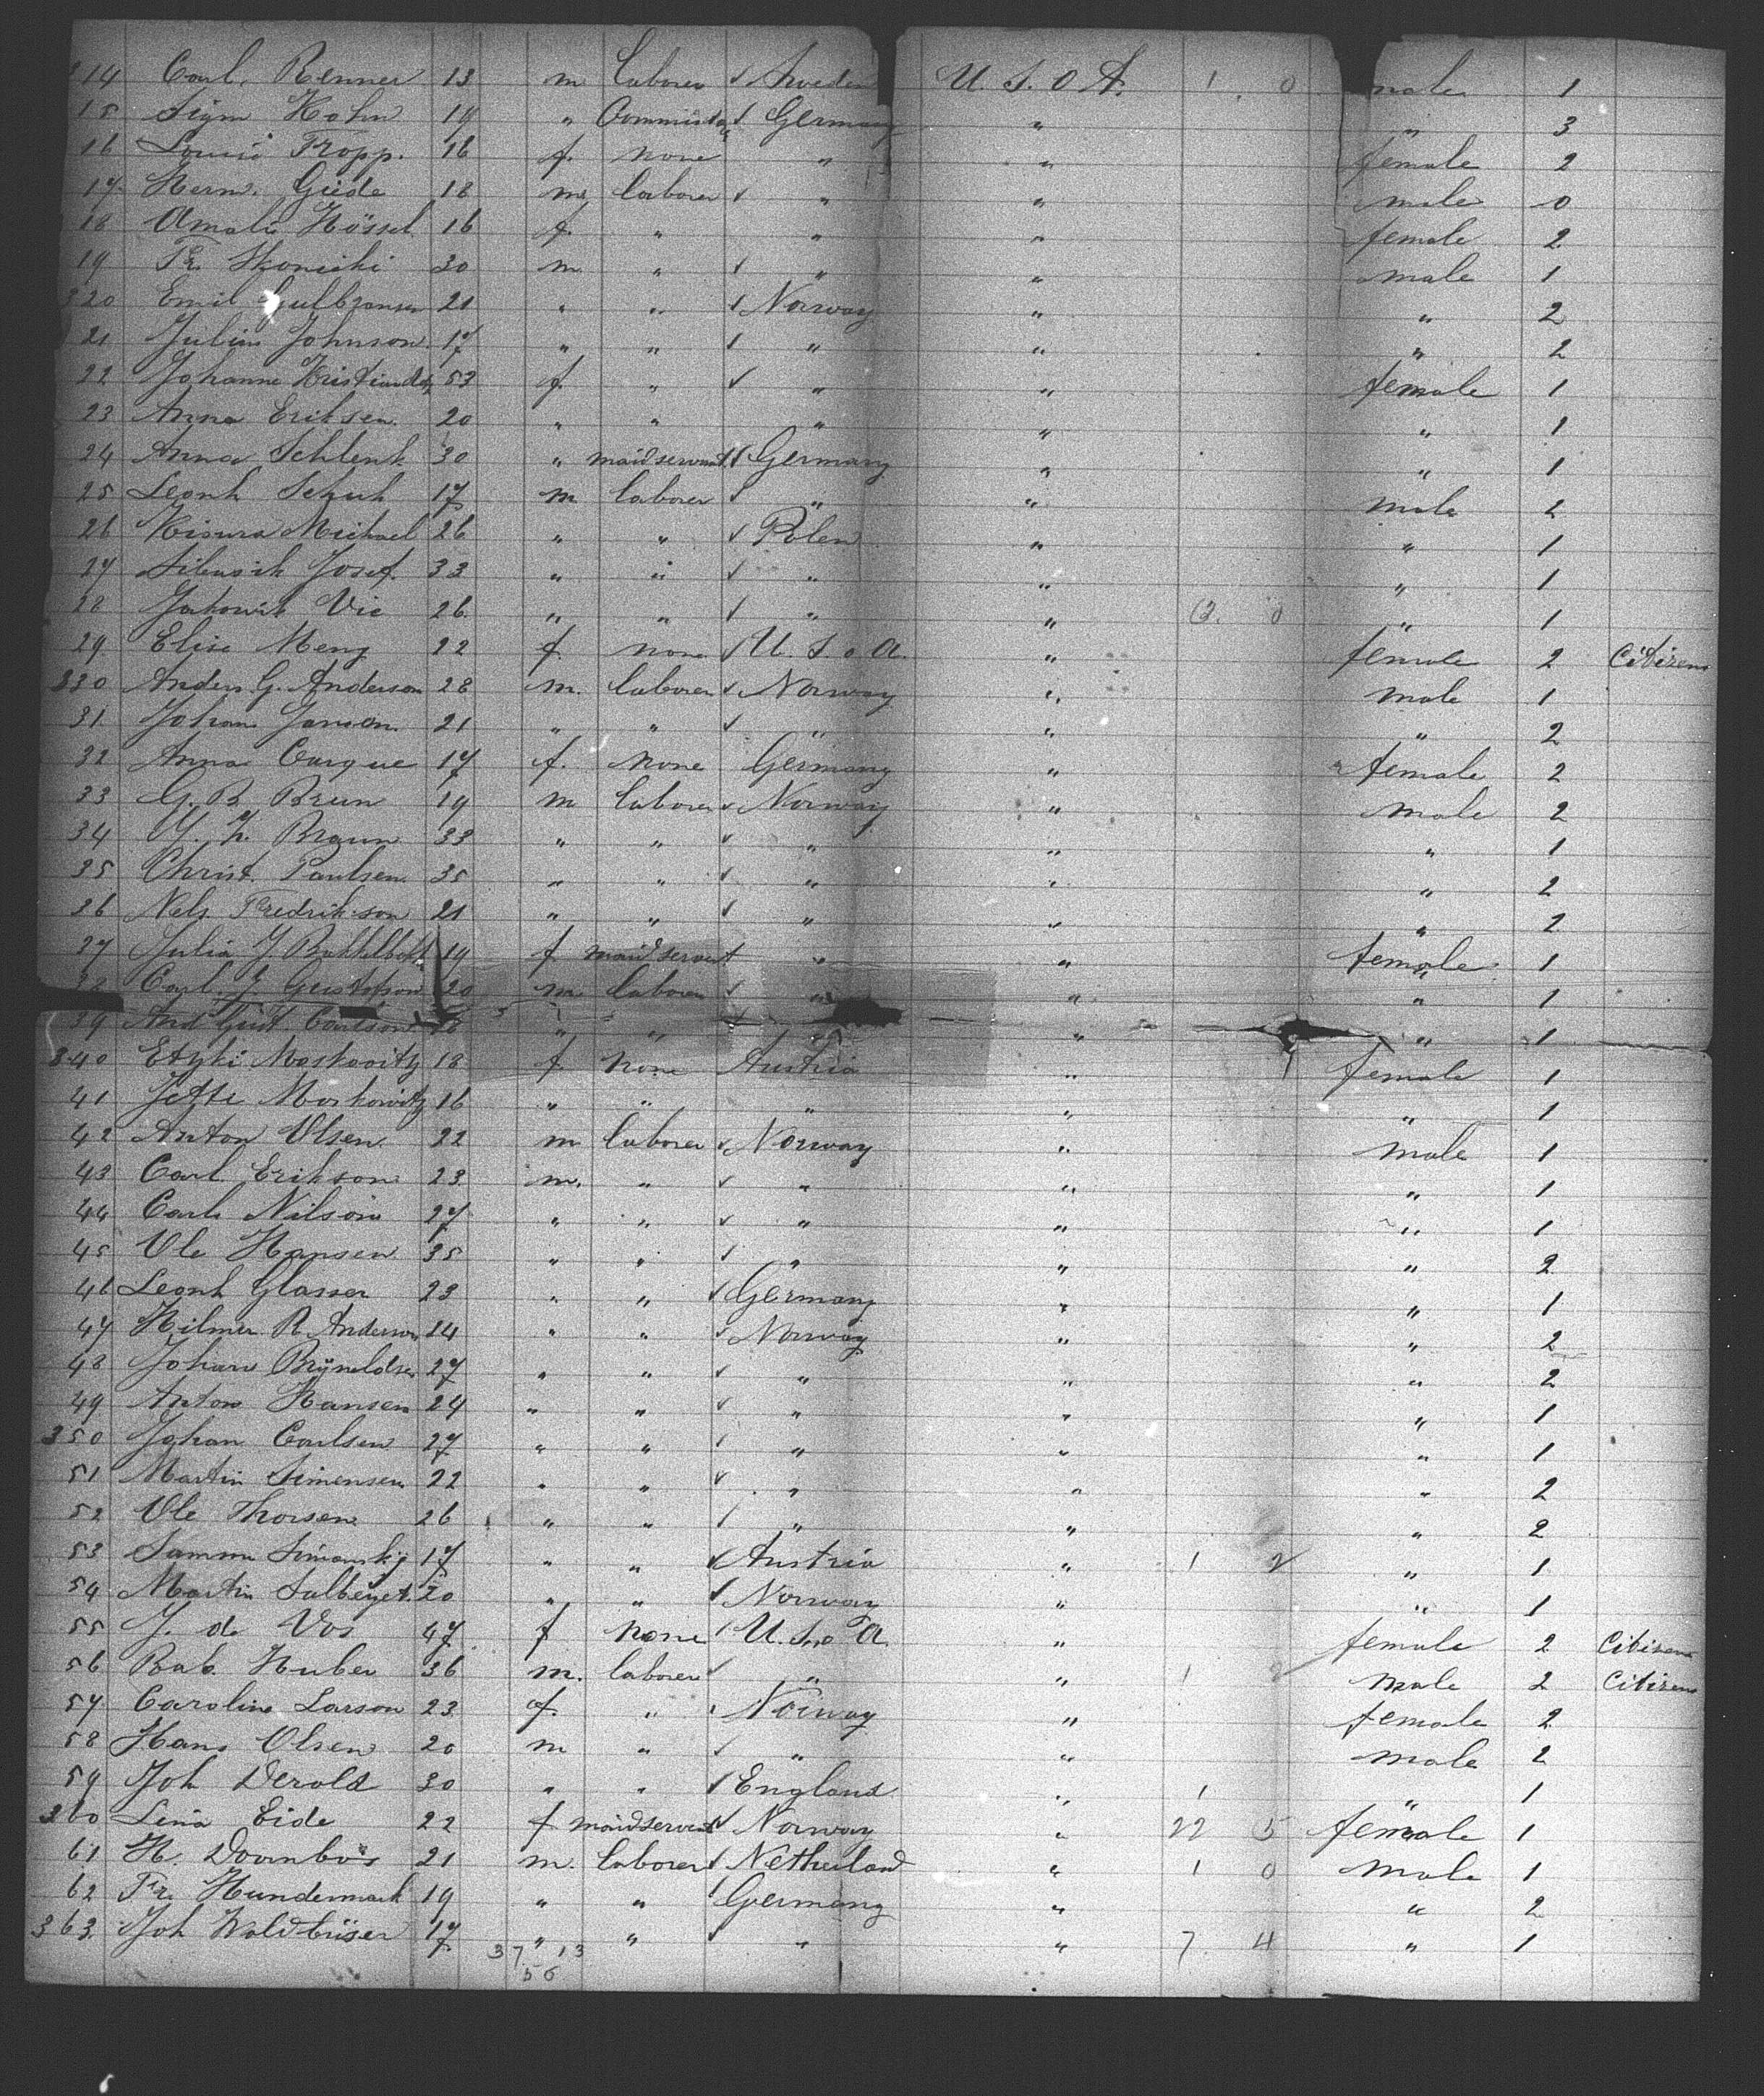 314 Carl. Renner 13 m laborer ✓ Sweden U. S. O A. 1. 0 male 1
15 Sigm Kohn 19 " ✓ Germany " " 3
16 Tropp. 18 f. none " " female 2
17 Herm. Güde 18 m laborer ✓ " " male 0
18 Amalie Hössel 16 f. " " " female 2
19 Fr. 30 m " ✓ " " male 1
320 Emil Gulbransen 21 " " ✓ Norway " " 2
21 Julius Johnson. 17 " " ✓ " " " 2
22 Johanne 53 f. " ✓ " " female 1
23 Anna Eriksen. 20 " " " " " 1
24 Anna Schlenk 30 " maidservant ✓ Germany " " 1
25 Leonh Schuh 17 m laborer ✓ " " male 2
26 Michael 26 " " ✓ Polen " " 1
27 Josef. 33 " " ✓ " " " 1
28 Vic 26. " " ✓ " " 0 " 1
29. Elise Meng 22 f. none ✓ U. S. o A. " female 2 Citizens
330 Anders G. Anderson 28 m. laborer ✓ Norway " male 1
31. Johan Jansen. 21 " " ✓ " " " 2
32 Anna Carque 17 f. none Germany " female 2
33 G. B. Brun 19 m laborer ✓ Norway " male 2
34 Braun 33 " " ✓ " " " 1
35 Christ. Paulsen. 35 " " ✓ " " " 2
36 Nels Fredrikson 21 " " ✓ " " " 2
37 Julia J. 19 f maidservant " " female 1
38 Carl. J. Gustafson 20 m laborer ✓ " " " 1
39 And Gust. Carlson " " " " " 1
340 Moskovitz 18 f none Austria " female 1
41 Jette Moskowitz 16 " " " " " 1
42 Anton Olsen 22 m laborer ✓ Norway " male 1
43 Carl Erikson 23. m. " ✓ " " " 1
44 Carl Nilson 27 " " ✓ " " " 1
45 Ole Hansen 35 " " ✓ " " " 2
46 Leonh Glasser 23 " " ✓ Germany " " 1
47 Hilmer R. Anderson 24 " " ✓ Norway " " 2
48 Johan Bryneldsen 27 " " ✓ " " " 2
49 Anton Hansen 24 " " ✓ " " " 1
350 Johan Carlsen 27 " " ✓ " " " 1
51 Martin Simensen 22 " " ✓ " " " 2
52 Ole Thorsen 26 " " ✓ " " " 2
53 17 " " ✓ Austria " 1 2 " 1
54 Martin 20 " " ✓ Norway " " 1
55 J. de Vos 47 f none ✓ U. S. o A. " female 2 Citizens
56 Bab. Huber 36 m. laborer ✓ " " 1 2 male 2 Citizens
57 Caroline Larson 23 f. " ✓ Norway " female 2
58 Hans Olsen 20 m " ✓ " " male 2
59 Joh Derold 30 " " ✓ England " 1 " 1
360 Lina Eide 22 f maidservant ✓ Norway " 22 5 female 1
61 H. Doornbos 21 m. laborer ✓ Netherland " 1 0 male 1
62 Fr. Hundermark 19 " " ✓ Germany " " 2
363. Joh 17 " " ✓ " " 7. 4 " 1
37. 13
56